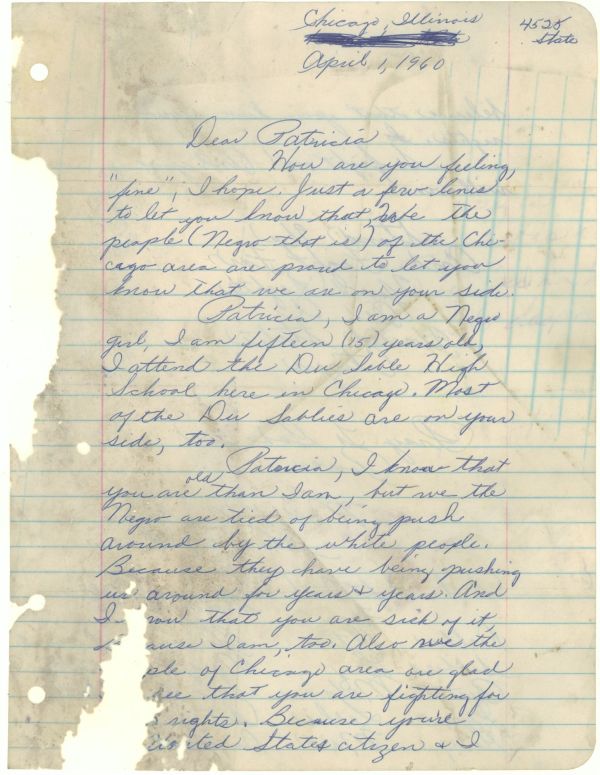 Chicago, Illinois
4525
State
April 1, 1960
Dear Patricia
How are you feeling,
"fine", I hope. Just a few lines
to let you know that, we the
people (Negro that is) of the Chi-
cago area are proud to let you
know that we are on your side.
Patricia, I am a Negro
girl, I am fifteen (15) years old,
I attend the Du Sable High
School here in Chicago. Most
of the Du Sablies are on your
side, too.
Patercia, I know that
you are old than I am, but we the
Negro are tied of being push
around by the white people.
Because they have being pushing
us around for years & years. And
I know that you are sick of it,
because I am, too. Also we the
people of Chicago area are glad
see that you are fighting for
rights. Because you're
United States citizen & I